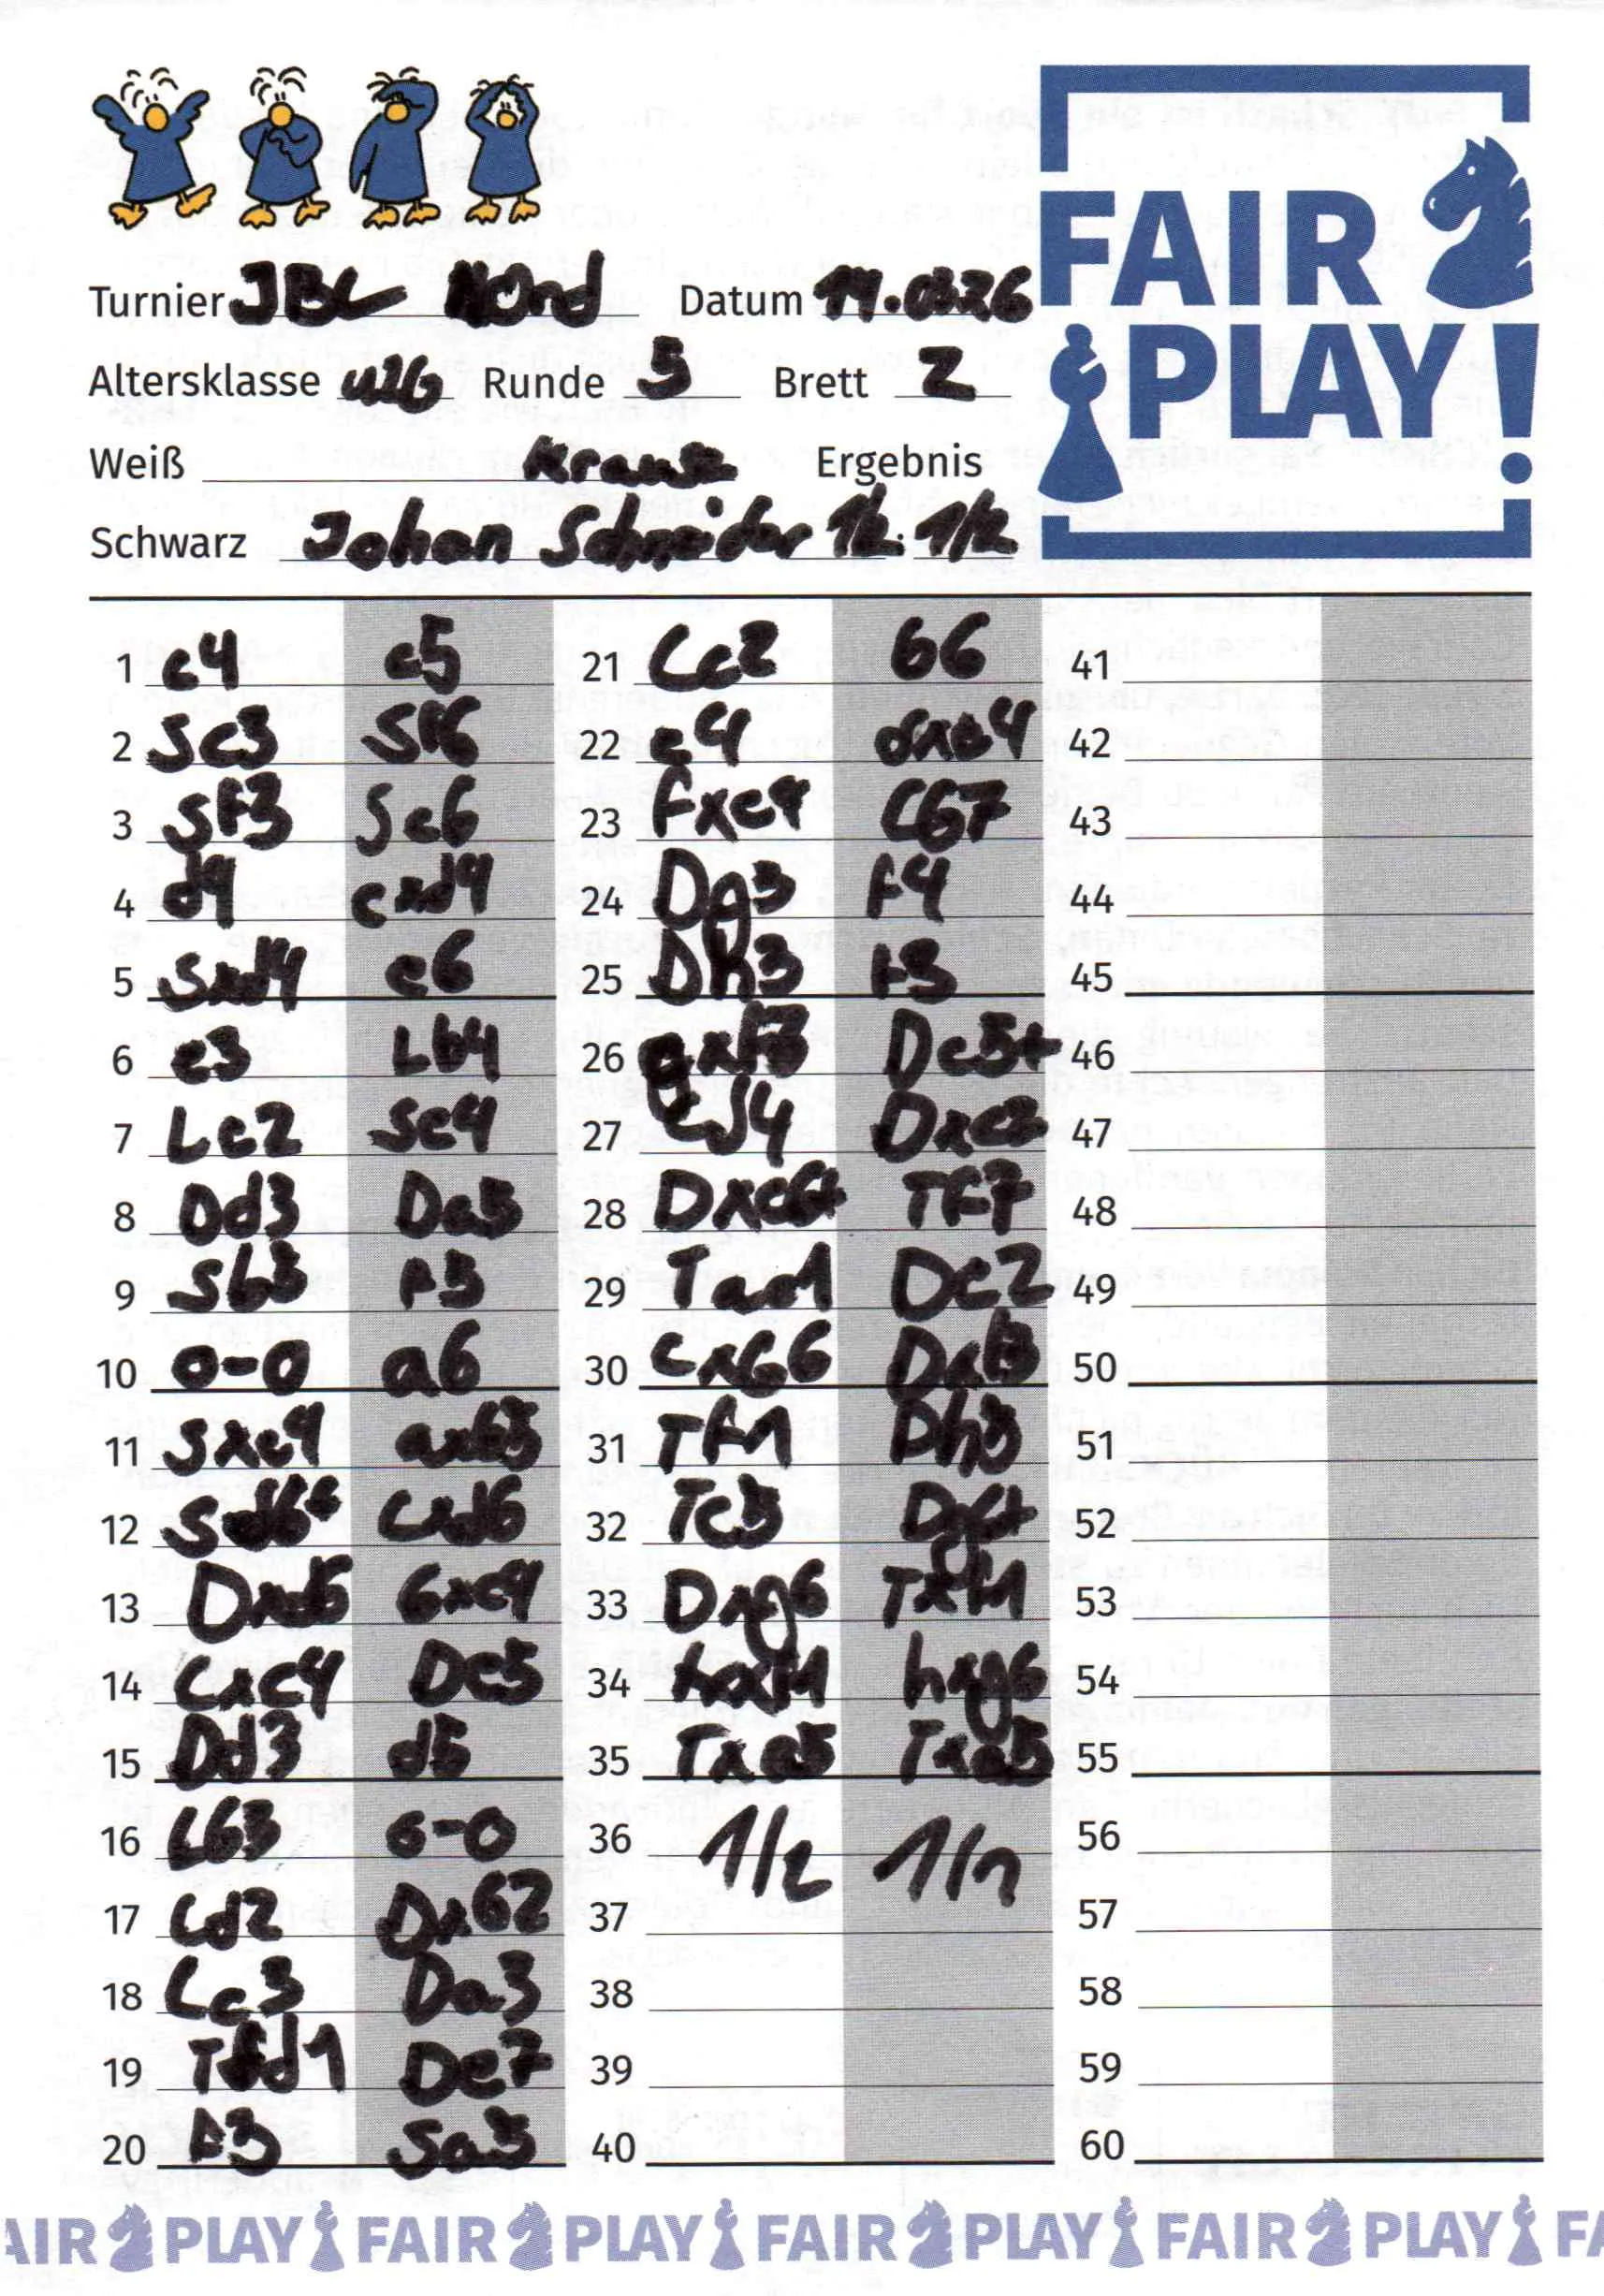 FAIR
PLAY!
Turnier JBL Nord Datum 14.0326
Altersklasse u16 Runde 5 Brett 2
Weiß Krause Ergebnis
Schwarz Johan Schneider 1/2:1/2
1 c4 c5
2 Sc3 Sf6
3 Sf3 Sc6
4 d4 cxd4
5 Sxd4 e6
6 e3 Lb4
7 Le2 Se4
8 Dd3 Da5
9 Sb3 f5
10 0-0 a6
11 Sxe4 axb3
12 Sd6+ Lxd6
13 Dxd6 bxc4
14 Lxc4 De5
15 Dd3 d5
16 Lb3 0-0
17 Ld2 Dxb2
18 Lc3 Da3
19 Tfd1 De7
20 f3 Sa5
21 Lc2 b6
22 e4 dxe4
23 fxe4 Lb7
24 Dg3 f4
25 Dh3 f3
26 gxf3 Dc5+
27 Ld4 Dxc2
28 Dxe6+ Tf7
29 Tac1 De2
30 Lxb6 Dxf3
31 Tf1 Dh3
32 Tc3 Dg4+
33 Dxg6 Txf1
34 hxg1 hxg6
35 Txa5 Txa5
36 1/2 1/2
37
38
39
40
41
42
43
44
45
46
47
48
49
50
51
52
53
54
55
56
57
58
59
60
AIR PLAY FAIR PLAY FAIR PLAY FAIR PLAY FA